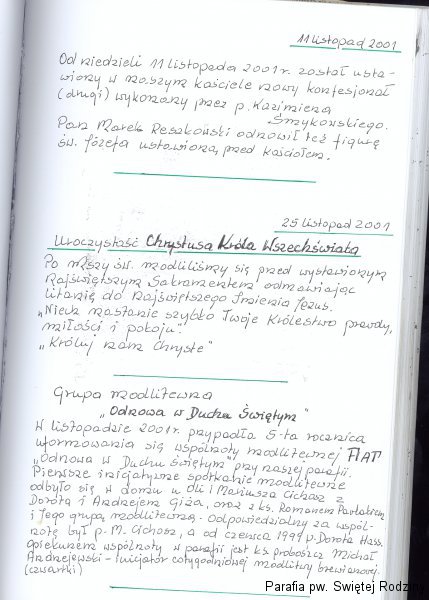 11 listopad 2001
Od niedzieli 11 listopada 2001 r. został usta-
wiony w naszym kościele nowy konfesjonał
(drugi) wykonany przez p. Kazimierza
Smykowskiego.
Pan Marek Reszkoński odnowił też figurę
św. Józefa ustawioną przed kościołem.
25 listopad 2001
Uroczystość Chrystusa Króla Wszechświata
Po mszy św. modliliśmy się przed wystawionym
Najświętszym Sakramentem odmawiając
litanię do Najświętszego Imienia Jezus.
„Niech nastanie szybko Twoje Królestwo prawdy,
miłości i pokoju".
„Króluj nam Chryste"
Grupa modlitewna
„Odnowa w Duchu Świętym"
W listopadzie 2001 r. przypadła 5-ta rocznica
uformowania się wspólnoty modlitewnej FIAT
„Odnowa w Duchu Świętym" przy naszej parafii.
Pierwsze inicjatywne spotkanie modlitewne
odbyło się w domu u Oli i Mariusza Cichosz z
Dorotą i Andrzejem Giża, oraz z ks. Romanem
i Jego grupą modlitewną. Odpowiedzialny za wspól-
notę był p. M. Cichosz, a od czerwca 1999 p. Dorota Hass.
Opiekunem wspólnoty w parafii jest ks. proboszcz Michał
Andrzejewski - inicjator cotygodniowej modlitwy brewiarzowej.
(czwartki)
Parafia pw. Swiętej Rodziny